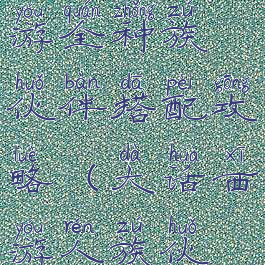 yóu quán zhǒng zú
游全种族
huǒ bàn dā pèi gōng
伙伴搭配攻
lüè dà huà xī
略(大话西
yóu rén zú huǒ
游人族伙